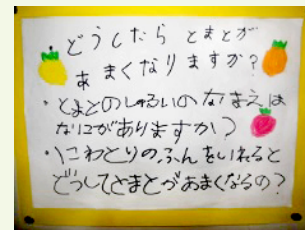 どうしたら とまとが
あまくなりますか?
・とまとのしゅるいのなまえは
なにがありますか?
・にわとりのふんをいれると
どうしてとまとがあまくなるの?